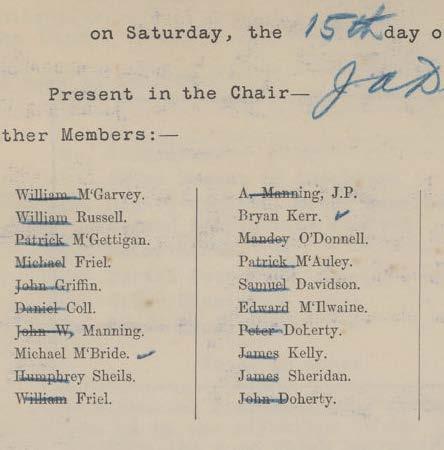 on Saturday, the 15th day o
Present in the Chair—
J a D
ther Members:—
William M'Garvey.
William Russell.
Patrick M'Gettigan.
Michael Friel.
John Griffin.
Daniel Coll.
John W. Manning.
Michael M'Bride.
Humphrey Sheils.
William Friel.
A. Manning, J.P.
Bryan Kerr.
Mandey O'Donnell.
Patrick M'Auley.
Samuel Davidson.
Edward M'Ilwaine.
Peter Doherty.
James Kelly.
James Sheridan.
John Doherty.